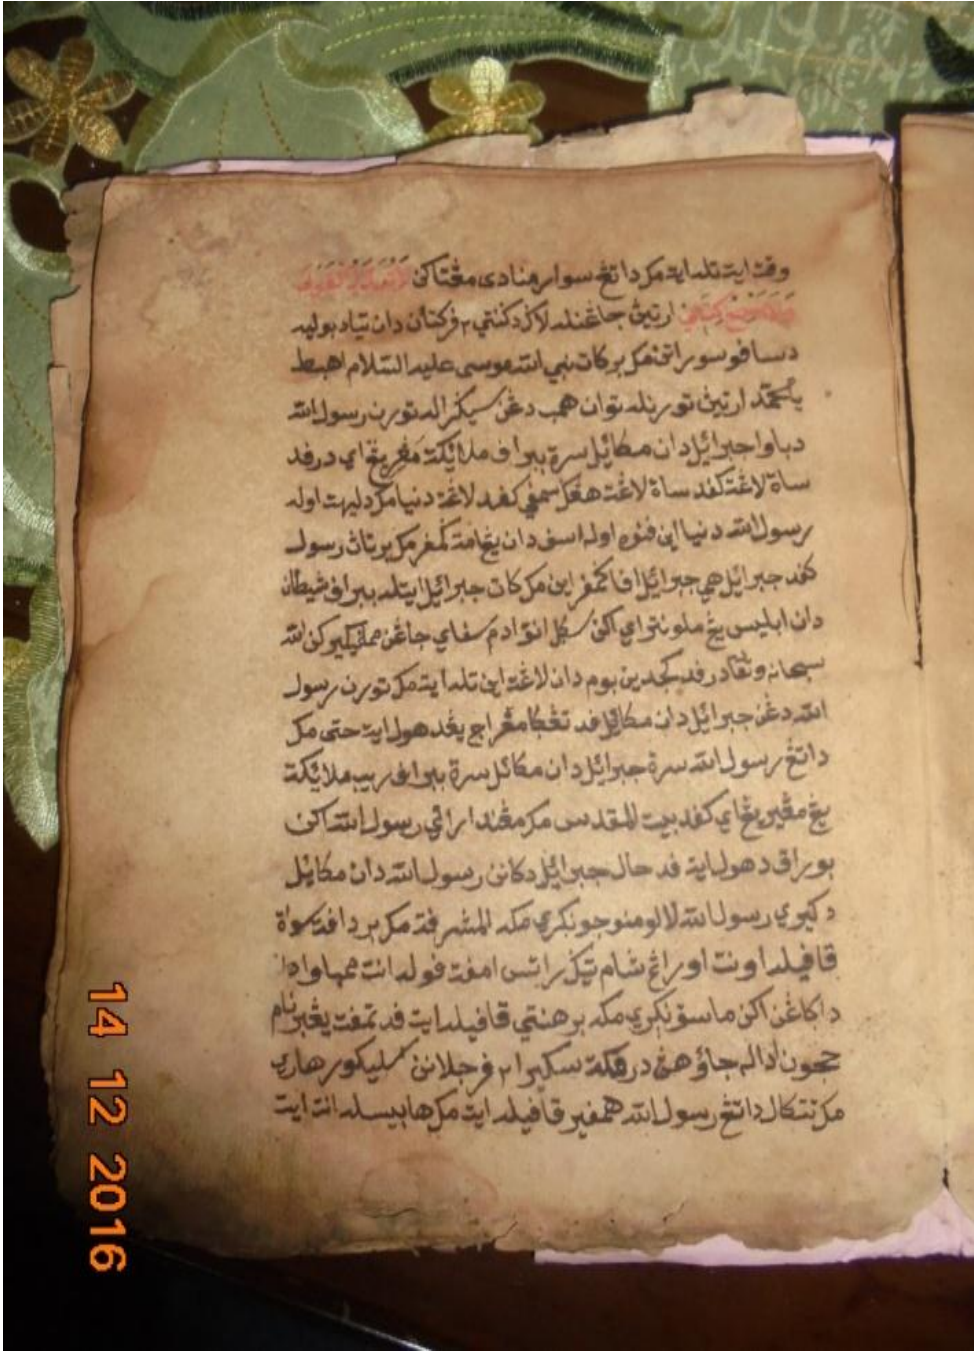 وقت ايت تله ايت مک داتڠ سوار منادى مڠتاکن
ارتيڽ جاڠنله لاݢ دکنتي٢ فرکتان دان تياد بوليه
دسافو سوراتن مک برکات نبي الله موسى عليه السلام اهبط
يا محمد ارتيڽ تورنله توان همب دڠن سݢراله تورن رسول الله
دباوا جبرائيل دان مکائيل سرة ببراف ملائکة مڠيريڠ اي درفد
ساة لاڠة کفد ساة لاڠة هڠݢ سمفي کفد لاڠة دنيا مک دليهت اوله
رسول الله دنيا اين فنوه اوله اسف دان يڠ امة کمفر مک برتاڽ رسول
کفد جبرائيل هي جبرائيل افا کمفر اين مک کات جبرائيل ايتله ببراف شيطان
دان ابليس يڠ ملونتراي اکن سݢل انق ادم سفاي جاڠن مميکيرکن الله
سبحانه وتعا درفد کجدين بوم دان لاڠة اين تله ايت مک تورن رسول
الله دڠن جبرائيل دان مکائيل فد تڠݢا معراج يڠد هول ايت حتى مک
داتڠ رسول الله سرة جبرائيل دان مکائل سرة ببراف ريب ملائکة
يڠ مڠيريڠاي کفد بيت المقدس مک مڠندارائي رسول الله اکن
بوراق دهول ايت فد حال جبرائيل دکانن رسول الله دان مکايل
دکيري رسول الله لالو منوجو نکري مکه المشرفة مک بردافة سوة
قافيله اونت اورڠ شام تيݢ راتس امفت فوله انت ممباوا
داکاڠن اکن ماسق نکري مکه برهنتي قافيله ايت فد تمفت يڠبرنام
حجون اداله جاوٴهڽ در مکة سکيرا٢ فرجلانن سليکور هاري
مک تتکال داتڠ رسول الله همفير قافيله ايت مک هابيسله انت ايت
14 12 2016